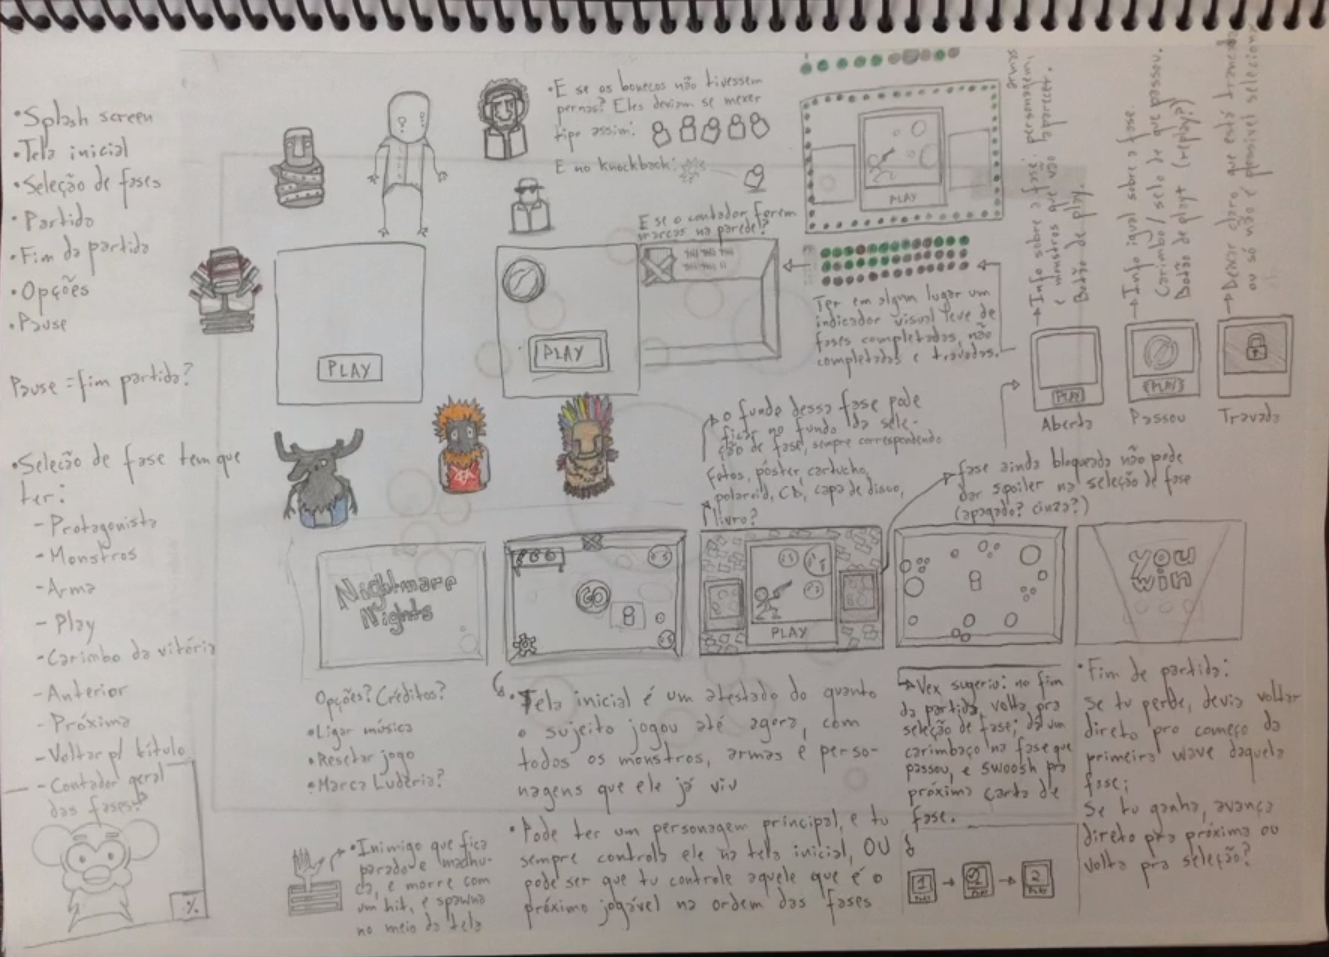 •Splash screen
•Tela inicial
•Seleção de fases
•Partida
•Fim da partida
•Opções
•Pause
Pause = fim partida?
•Seleção de fase tem que
ter:
- Protagonista
- Monstros
- Arma
- Play
- Carimbo da vitória
- Anterior
- Próxima
- Voltar p/ título
- Contador geral
das fases?
•E se os bonecos não tivessem
pernas? Eles deviam se mexer
tipo assim:
E no knockback:
E se o contador forem
marcas na parede?
PLAY
PLAY
PLAY
Ter em algum lugar um
indicador visual leve de
fases completadas, não
completadas e travadas.
→Info sobre a fase: personagem,
armas
e monstros que vão aparecer.
Botão de play.
→Info igual sobre a fase.
Carimbo/selo de que passou.
Botão de play (replay?)
→Deixar claro que está trancada
ou só não é possível selecionar
PLAY
Aberta
PLAY
Passou
Travada
o fundo dessa fase pode
ficar no fundo da sele-
ção de fase, sempre correspondendo
Fotos, pôster, cartucho,
polaroid, CD, capa de disco,
livro?
fase ainda bloqueada não pode
dar spoiler na seleção de fase
(apagado? cinza?)
Nightmare
Nights
GO
PLAY
you
win
Opções? Créditos?
•Ligar música
•Resetar jogo
•Marca Ludéria?
•Tela inicial é um atestado do quanto
o sujeito jogou até agora, com
todos os monstros, armas e perso-
nagens que ele já viu
•Pode ter um personagem principal, e tu
sempre controla ele na tela inicial, OU
pode ser que tu controle aquele que é o
próximo jogável na ordem das fases
→Vex sugeriu: no fim
da partida, volta pra
seleção de fase; dá um
carimbaço na fase que
passou, e swoosh pra
próxima carta de
fase.
1 → → 2
•Fim de partida:
Se tu perde, devia voltar
direto pro começo da
primeira wave daquela
fase;
Se tu ganha, avança
direto pra próxima ou
volta pra seleção?
•Inimigo que fica
parado e
e morre com
um hit, e spawna
no meio da tela
%